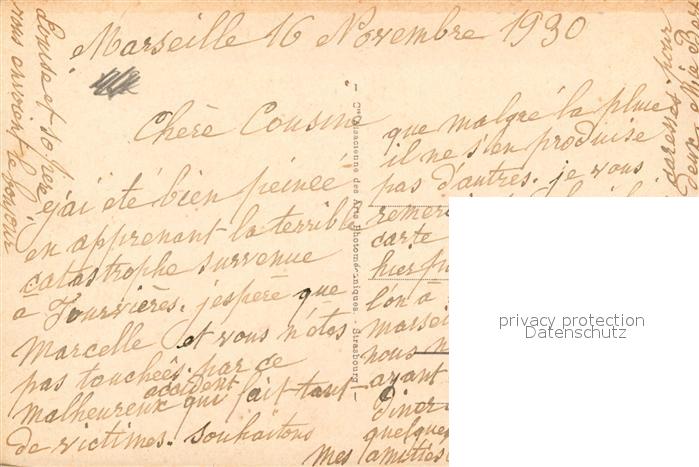 Marseille 16 Novembre 1930
Chère Cousine
j'ai été bien peinée
en apprenant la terrible
catastrophe survenue
à Fourvières. j'espère que
Marcelle et vous n'êtes
pas touchées par ce
accident
malheureux qui fait tant
de victimes. souhaitons
que malgré la pluie
il ne s'en produise
pas d'autres. je vous
carte
hier
l'on à
nous
ayant
diner
mes amitiés
Louise et so père
vous envoient le bonjour
caresses pour
Cie Alsacienne des Arts Photomécaniques. - Strasbourg
privacy protection
Datenschutz